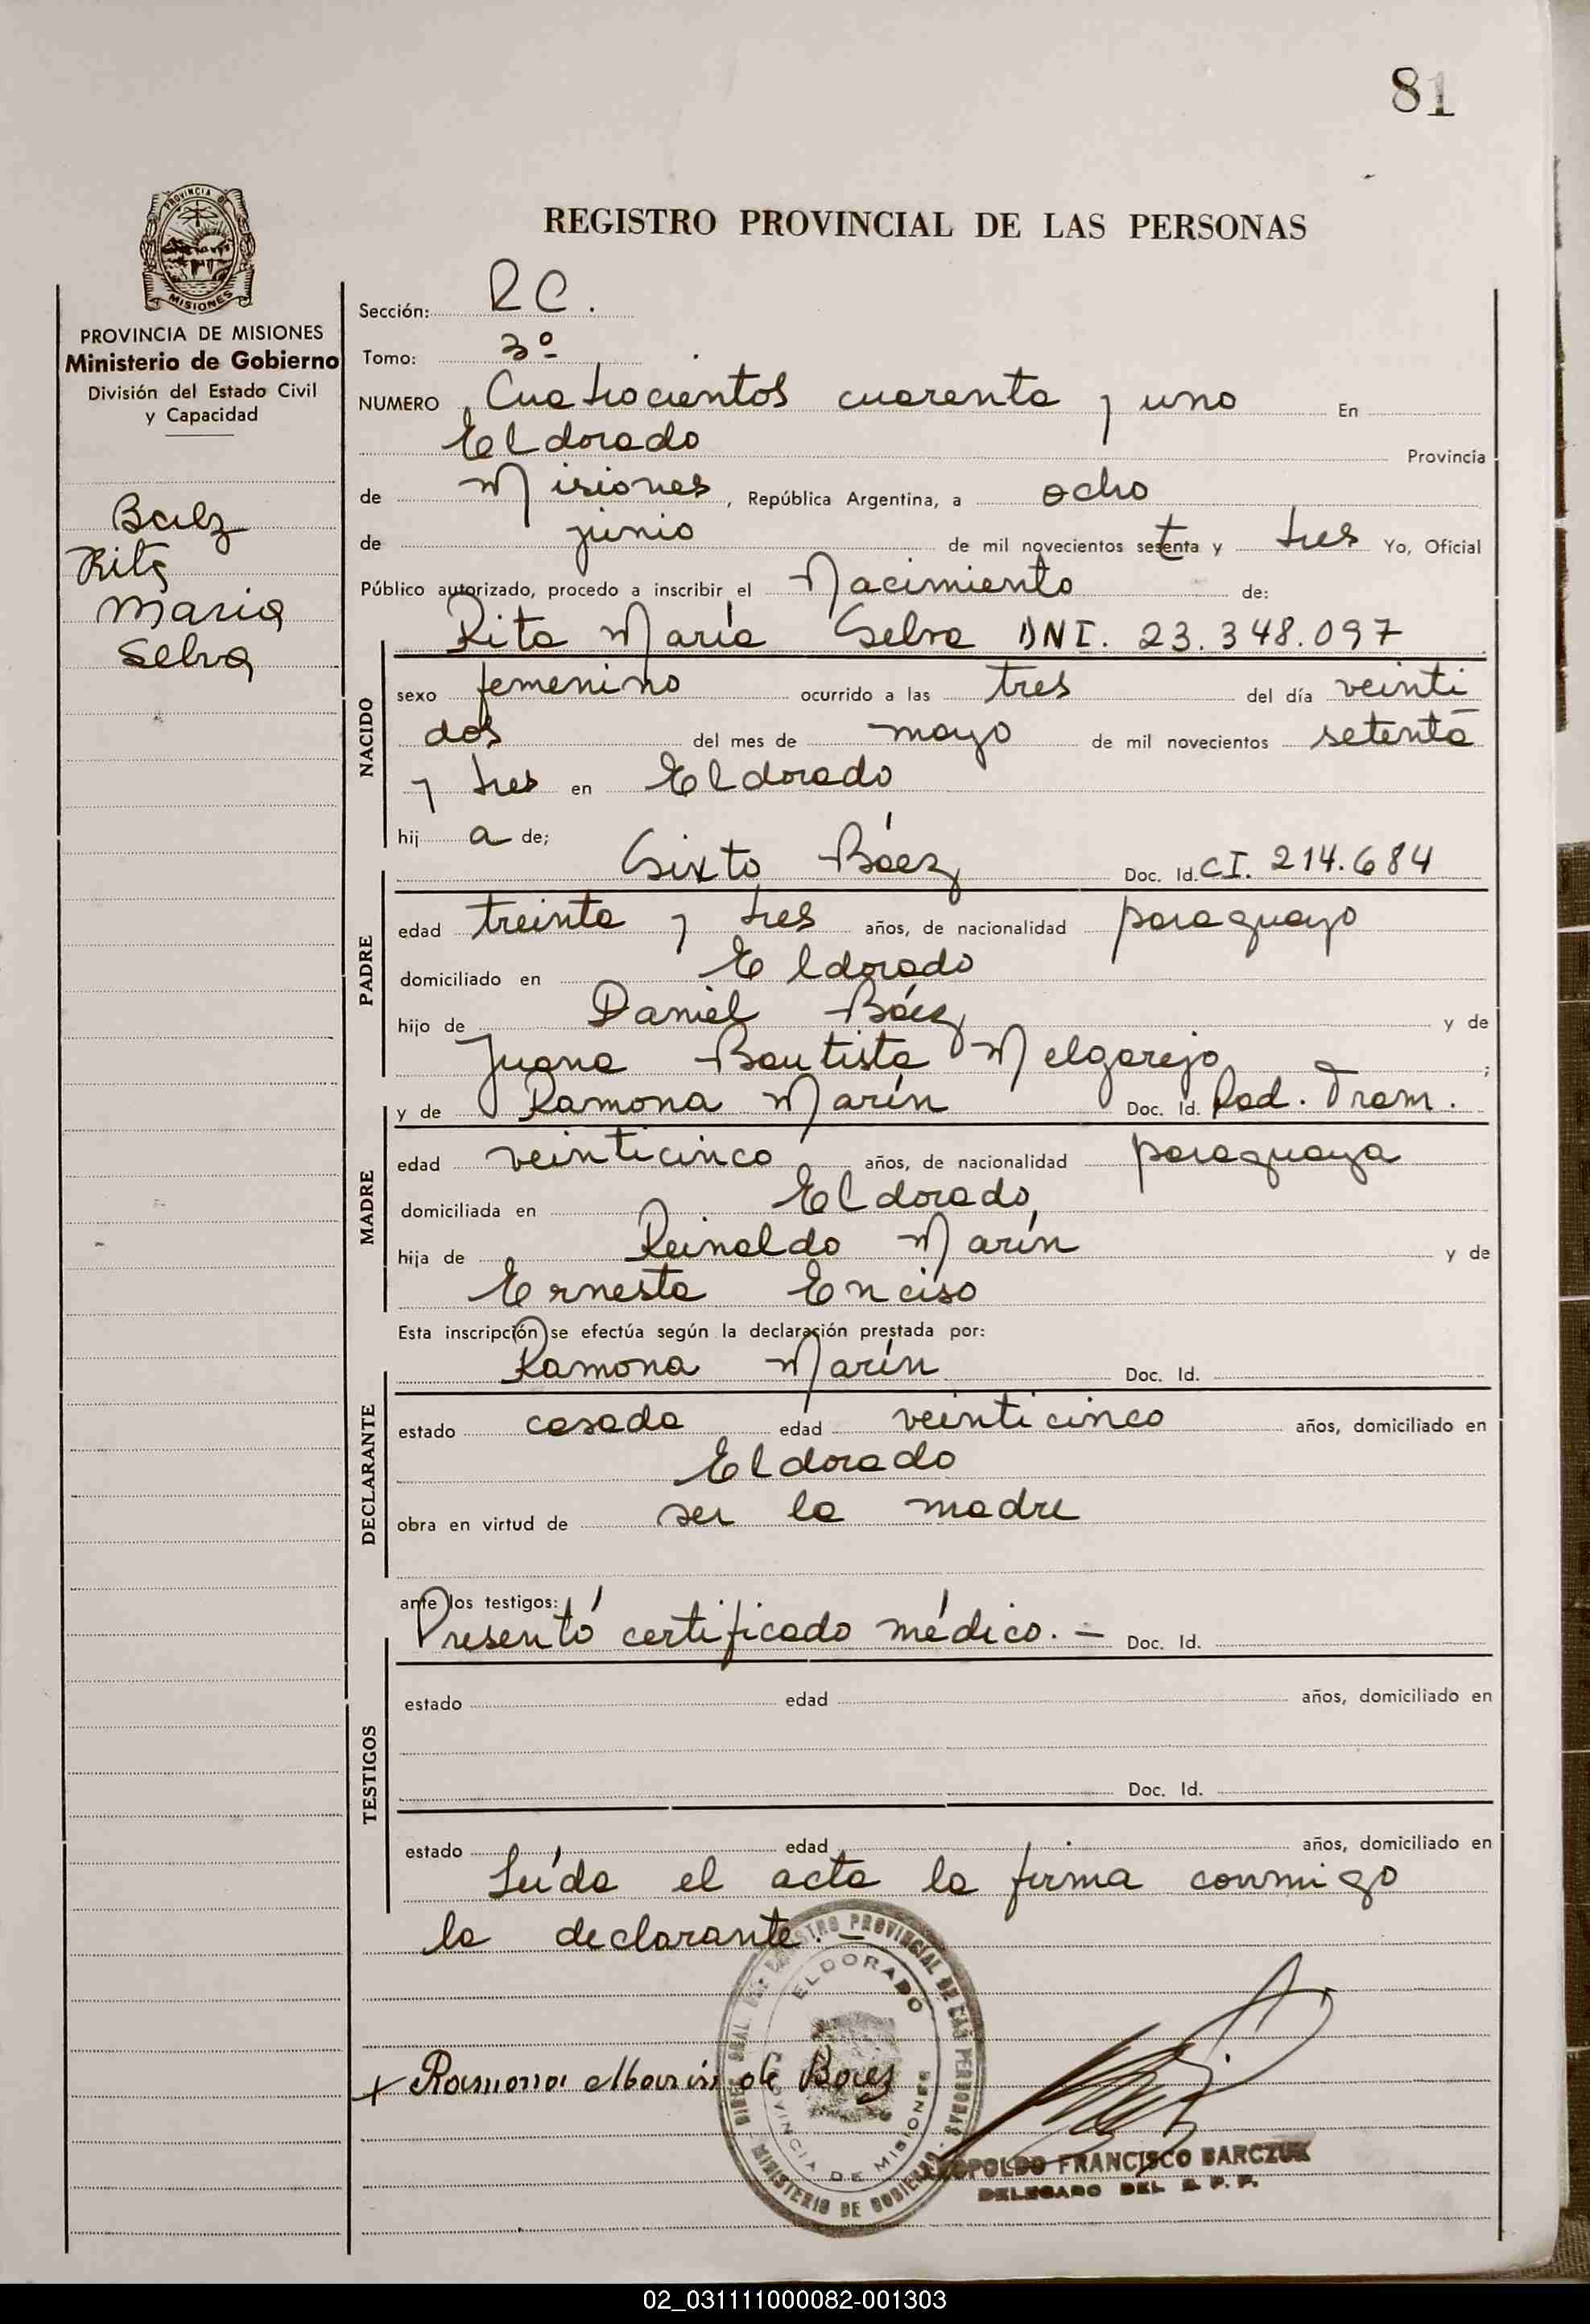 81
REGISTRO PROVINCIAL DE LAS PERSONAS
PROVINCIA DE MISIONES
PROVINCIA DE MISIONES
Ministerio de Gobierno
División del Estado Civil
y Capacidad
Baez
Rita
Maria
Selva
Sección: RC.
Tomo: 3º
NUMERO Cuatrocientos cuarenta y uno En
Eldorado Provincia
de Misiones, República Argentina, a ocho
de junio de mil novecientos setenta y tres Yo, Oficial
Público autorizado, procedo a inscribir el Nacimiento de:
Rita María Selva DNI. 23.348.097
NACIDO
sexo femenino ocurrido a las tres del día veinti
dos del mes de mayo de mil novecientos setenta
y tres en Eldorado
hij a de;
Sixto Báez Doc. Id. CI. 214.684
PADRE
edad treinta y tres años, de nacionalidad paraguayo
domiciliado en Eldorado
hijo de Daniel Báez y de
Juana Bautista Melgarejo ;
y de Ramona Marín Doc. Id. Rad. Tram.
MADRE
edad veinticinco años, de nacionalidad paraguaya
domiciliada en Eldorado
hija de Reinaldo Marín y de
Ernesta Enciso
Esta inscripción se efectúa según la declaración prestada por:
Ramona Marín Doc. Id.
DECLARANTE
estado casada edad veinticinco años, domiciliado en
Eldorado
obra en virtud de ser la madre
ante los testigos:
Presentó certificado médico. — Doc. Id.
TESTIGOS
estado edad años, domiciliado en
Doc. Id.
estado edad años, domiciliado en
Leída el acta la firma conmigo
la declarante. —
REGISTRO PROVINCIAL DE LAS PERSONAS
ELDORADO
PROVINCIA DE MISIONES
MINISTERIO DE GOBIERNO
+ Ramona Marin de Baez
LEOPOLDO FRANCISCO BARCZUK
DELEGADO DEL R. P. P.
02_031111000082-001303